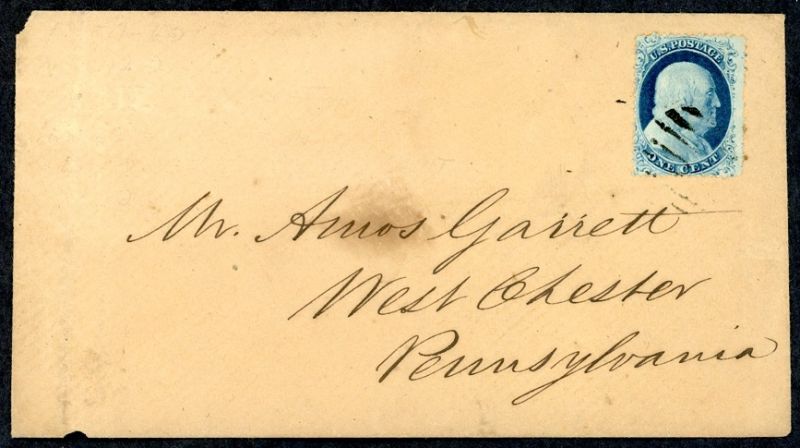 U.S. POSTAGE
ONE CENT
Mr. Amos Garrett
West Chester
Pennsylvania